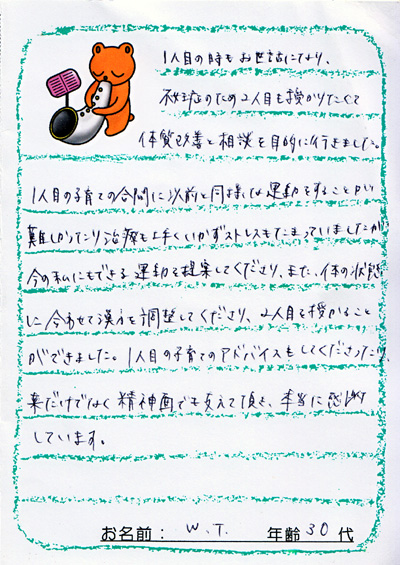 1人目の時もお世話になり、
不妊症のため2人目も授かりたくて
体質改善と相談を目的に行きました。
1人目の子育ての合間に以前と同様な運動をすることが
難しかったり治療も上手くいかずストレスもたまっていましたが
今の私にもできる運動を提案してくださり、また、体の状態
に合わせて漢方を調整してくださり、2人目を授かること
ができました。1人目の子育てのアドバイスもしてくださったり
薬だけでなく精神面でも支えて頂き、本当に感謝
しています。
お名前: W.T. 年齢30代